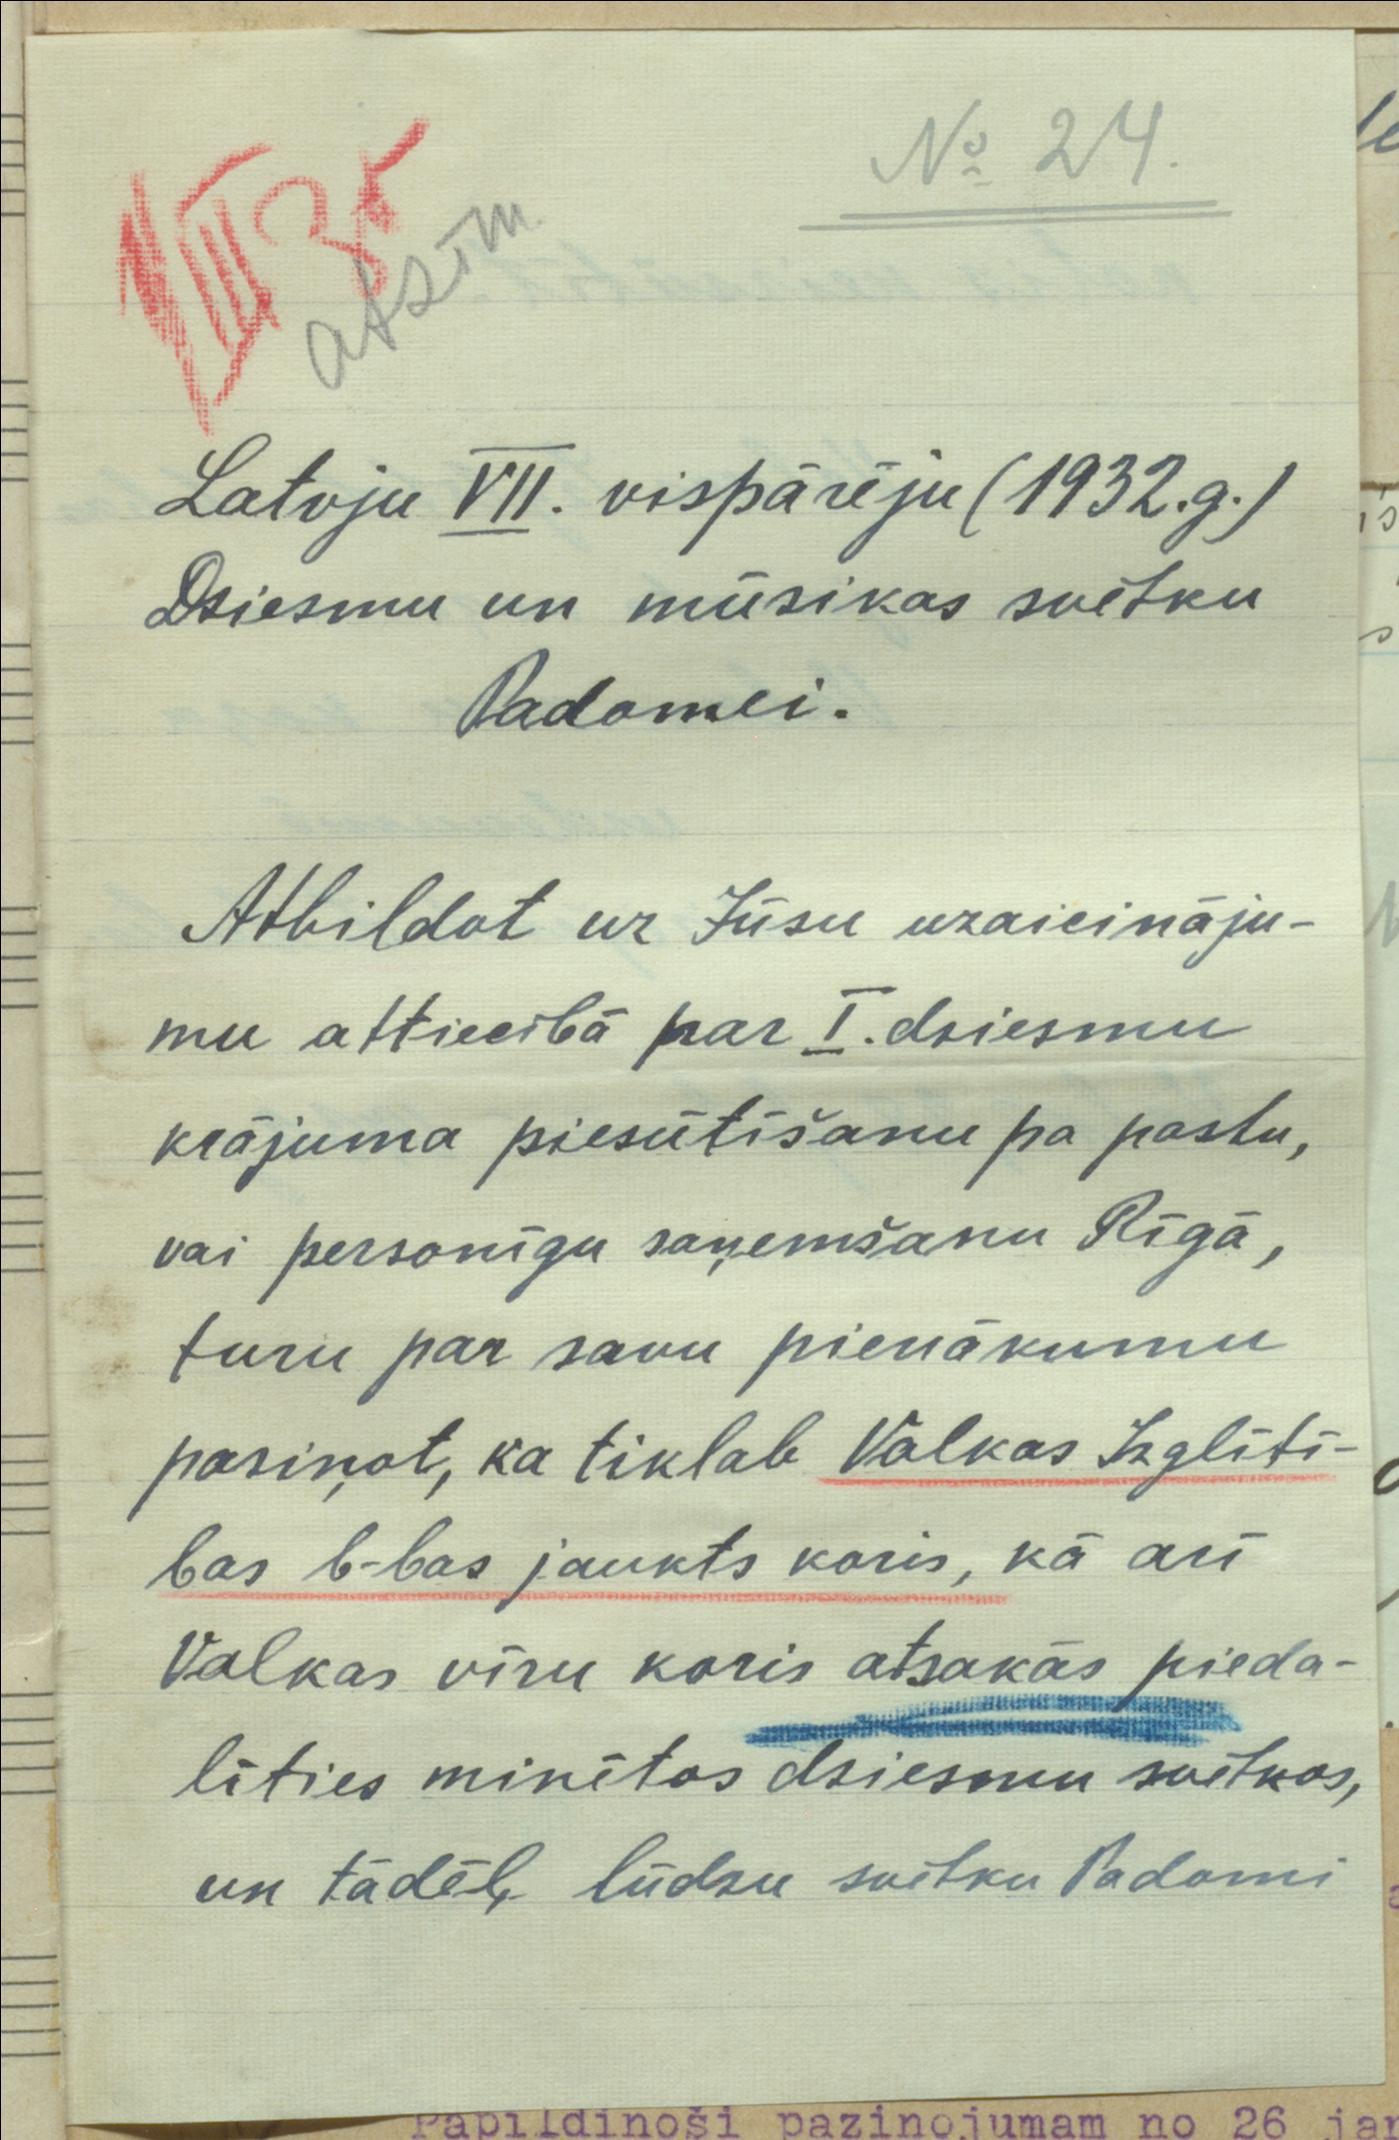 № 24.
VII 35
atsīm
Latvju VII. vispārēju (1932.g.)
Dziesmu un mūzikas svētku
Padomei.
Atbildot uz Jūsu uzaicināju-
mu attiecībā par I. dziesmu
krājuma piesūtīšanu pa pastu,
vai personīgu saņemšanu Rīgā,
turu par savu pienākumu
paziņot, ka tiklab Valkas Izglītī-
bas b-bas jaukts koris, kā arī
Valkas vīru koris atsakās pieda-
līties minētos dziesmu svētkos,
un tādēļ lūdzu svētku Padomi
Papildinoši paziņojumam no 26 jan